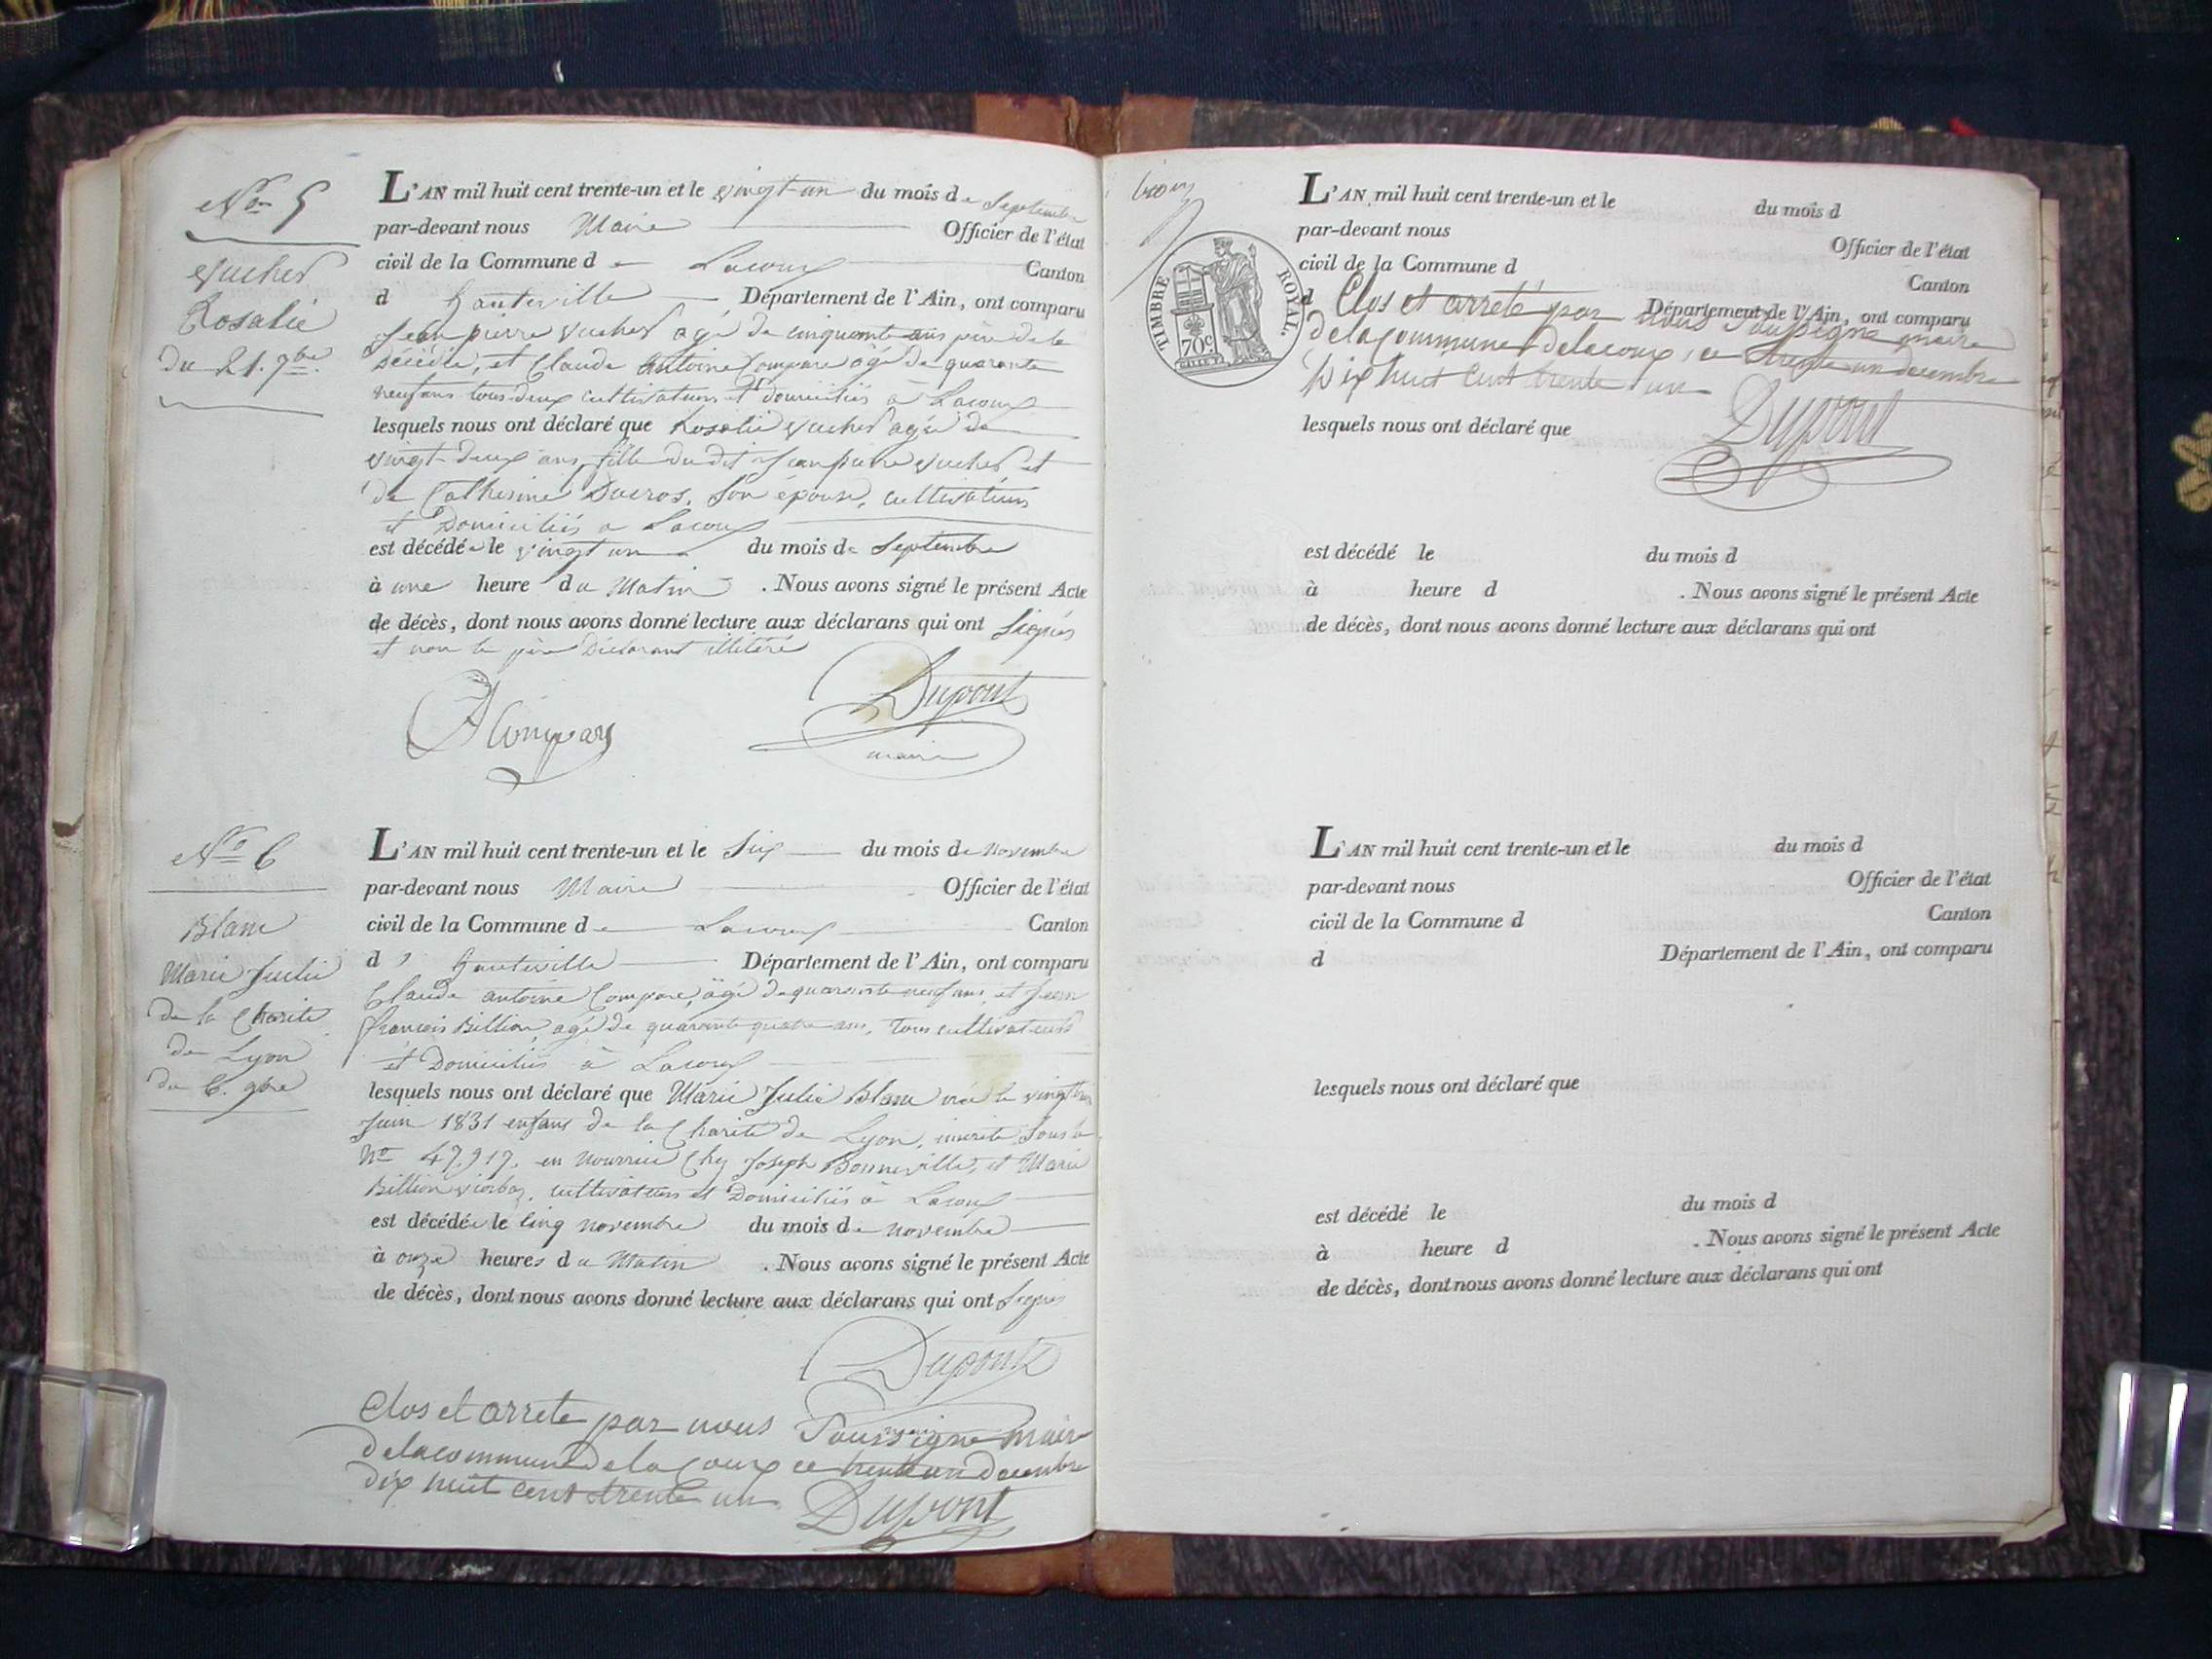 No 5
Vucher
Rosalie
du 21. 7bre.
L'AN mil huit cent trente-un et le vingt-un du mois de Septembre
par-devant nous Maire Officier de l'état
civil de la Commune de Lacoux Canton
d hauteville Département de l'Ain, ont comparu
Jean pierre Vucher agé de cinquante ans père de la
décédée, et Claude Antoine Compare agé de quarante
neuf ans tous deux cultivateurs et domiciliés à Lacoux
lesquels nous ont déclaré que Rosalie Vucher agée de
vingt-deux ans, fille dudit Jean pierre Vucher et
de Catherine Ducros, son épouse, cultivateurs
et Domiciliés à Lacoux
est décédée le vingt un du mois de Septembre
à une heure du Matin . Nous avons signé le présent Acte
de décès, dont nous avons donné lecture aux déclarans qui ont Signés
et non le père Déclarant illitéré
Dupont
maire
No 6
Blanc
Marie Julie
de la Charité
de Lyon
du 6. 9bre
L'AN mil huit cent trente-un et le Six du mois de novembre
par-devant nous Maire Officier de l'état
civil de la Commune de Lacoux Canton
d' hauteville Département de l'Ain, ont comparu
Claude antoine Compare, âgé de quarante neuf ans, et Jean
françois Billion, agé de quarante quatre ans, tous cultivateurs
et Domiciliés à Lacoux
lesquels nous ont déclaré que Marie Julie Blanc née le vingt
Juin 1831 enfant de la Charité de Lyon, inscrite Sous le
No 47,917. en nourrice Chez Joseph Bonneville, et Marie
Billion cultivateurs et Domiciliés à Lacoux
est décédée le Cinq novembre du mois de novembre
à onze heures du Matin . Nous avons signé le présent Acte
de décès, dont nous avons donné lecture aux déclarans qui ont Signés
Dupont
Clos et arrete par nous Soussigne maire
de la commune de la Coux ce trente un decembre
dix huit cent trente un
Dupont
TIMBRE ROYAL.
70c
L'AN mil huit cent trente-un et le du mois d
par-devant nous Officier de l'état
civil de la Commune d Canton
d Département de l'Ain, ont comparu
Clos et arreté par nous Soussigne maire
de la commune de lacoux, ce trente un decembre
Dix huit cent trente un
Dupont
lesquels nous ont déclaré que
est décédé le du mois d
à heure d . Nous avons signé le présent Acte
de décès, dont nous avons donné lecture aux déclarans qui ont
L'AN mil huit cent trente-un et le du mois d
par-devant nous Officier de l'état
civil de la Commune d Canton
d Département de l'Ain, ont comparu
lesquels nous ont déclaré que
est décédé le du mois d
à heure d . Nous avons signé le présent Acte
de décès, dont nous avons donné lecture aux déclarans qui ont